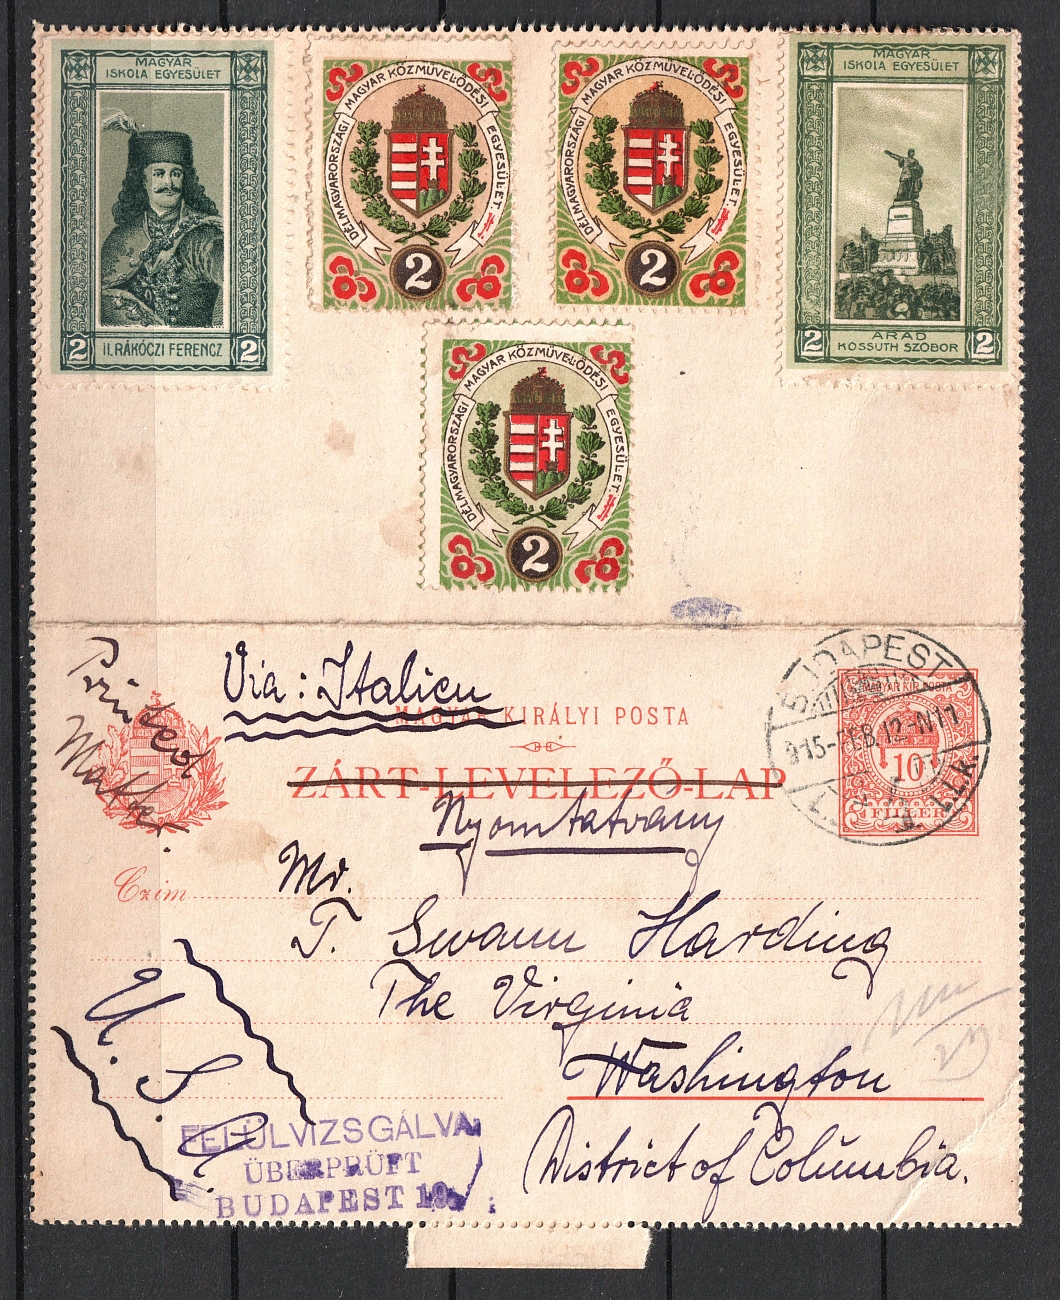 MAGYAR
ISKOLA EGYESÜLET
2 II. RÁKÓCZI FERENCZ 2
DÉLMAGYARORSZÁGI MAGYAR KÖZMŰVELŐDÉSI EGYESÜLET.
2
DÉLMAGYARORSZÁGI MAGYAR KÖZMŰVELŐDÉSI EGYESÜLET.
2
MAGYAR
ISKOLA EGYESÜLET
2 ARAD 2
KOSSUTH SZOBOR
DÉLMAGYARORSZÁGI MAGYAR KÖZMŰVELŐDÉSI EGYESÜLET.
2
Via: Italien
MAGYAR KIRÁLYI POSTA
ZÁRT-LEVELEZŐ-LAP
Nyomtatvány
BUDAPEST
915
MAGYAR KIR. POSTA
10
FILLÉR
Czim
Mr.
T. Swann Harding
The Virginia
Washington
District of Columbia.
U. S. A.
FELÜLVIZSGÁLVA
ÜBERPRÜFT
BUDAPEST 19